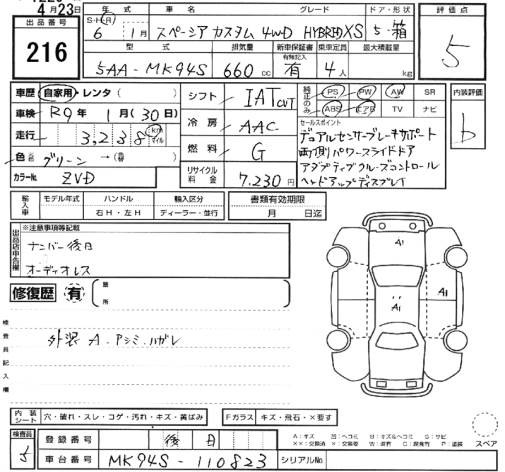 4月23日
出品番号
216
年式 車名 グレード ドア・形状
S・H・R 6年 1月 スペーシア カスタム 4WD HYBRID XS 5・箱
型式 排気量 新車保証書 乗車定員 最大積載量
有無記入
5AA-MK94S 660cc 有 4人 kg
評価点
5
車歴 自家用・レンタ( )
車検 R9年 1月(30日)
走行 3,238 km マイル
色 グリーン →(替)
カラーNo. ZVD
シフト IAT CVT
冷房 AAC
燃料 G
リサイクル料金 7,230円
純正のみ PS PW AW SR
ABS エアB TV ナビ
セールスポイント
デュアルセンサーブレーキサポート
両側パワースライドドア
アダプティブクルーズコントロール
ヘッドアップディスプレイ
内装評価
b
輸入車 モデル年式 ハンドル 輸入区分 書類有効期限
右H・左H ディーラー・並行 月 日迄
出品店申告欄
※注意事項等記載
ナンバー後日
オーディオレス
修復歴 有 箇所
検査員記入欄
外装 A・アシミ・ハガレ
A1
A1
A1
内装シート 穴・破れ・スレ・コゲ・汚れ・キズ・黄ばみ Fガラス キズ・飛石・×要す
検査員 登録番号 後日
車台番号 MK94S-110823 シリアルNo.
スペア